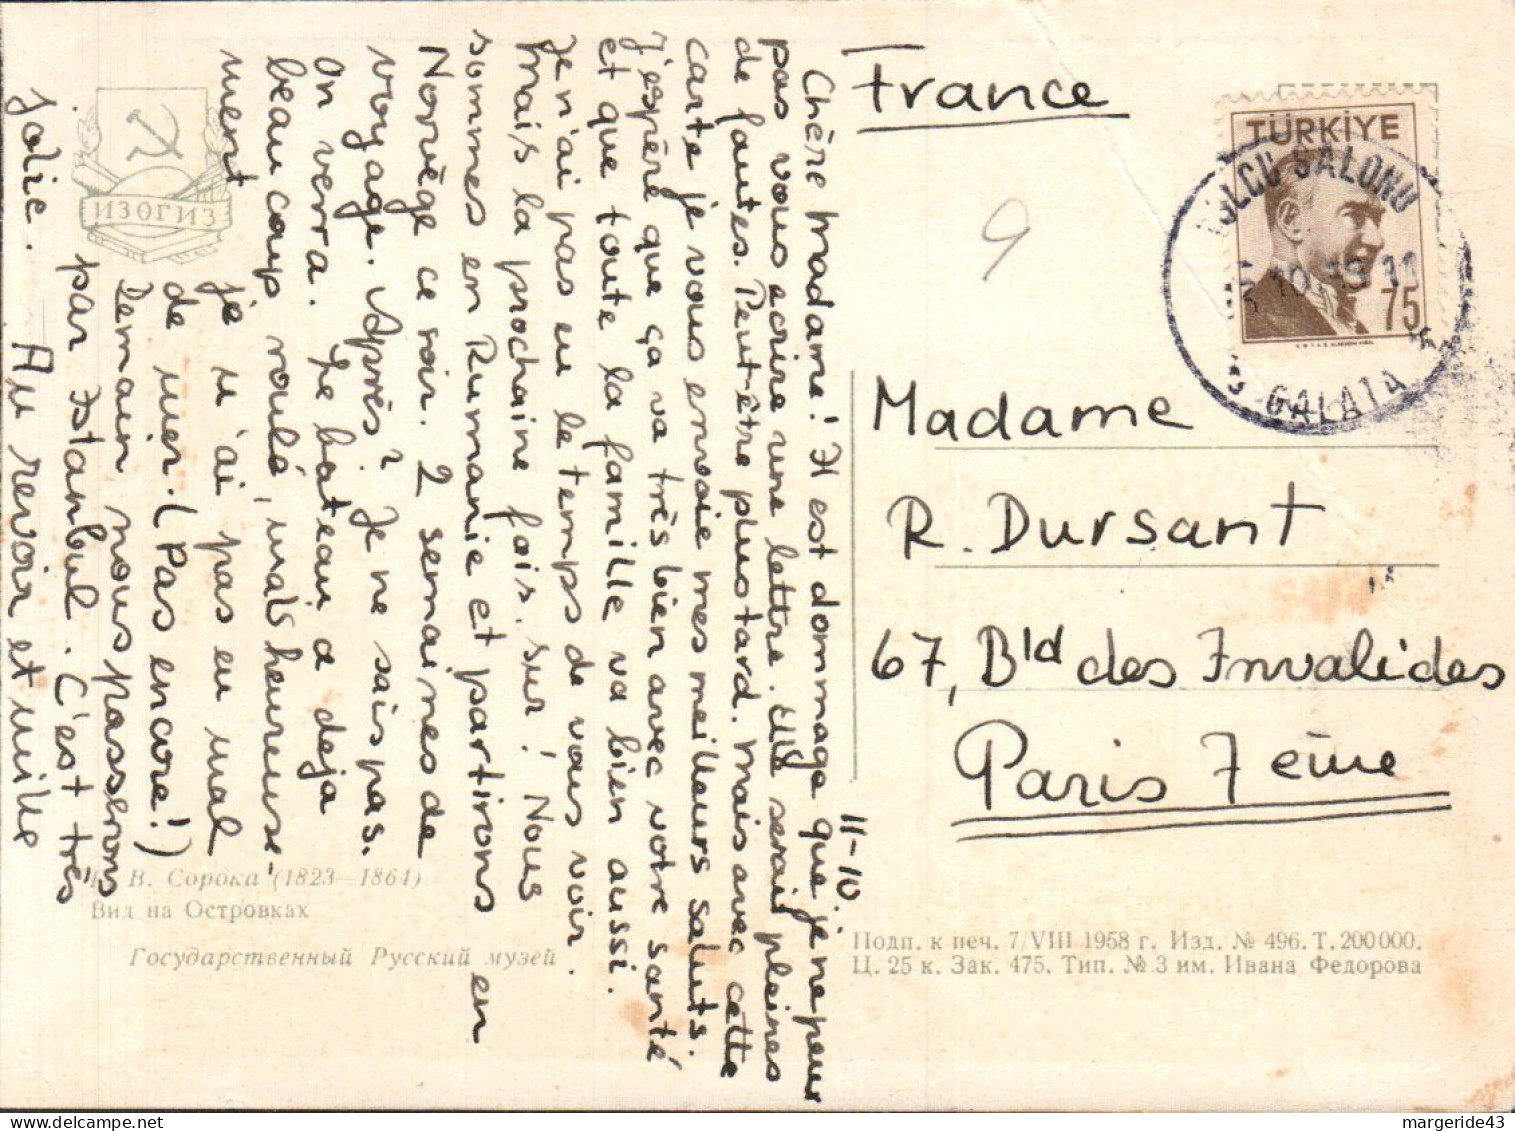 11-10.
Chère Madame! Il est dommage que je ne peux
pas vous ecrire une lettre. Elle serait pleines
de fautes. Peut-être plus tard. Mais avec cette
carte je vous envoie mes meilleurs saluts.
J'espère que ça va très bien avec votre santé
et que toute la famille va bien aussi.
Je n'ai pas eu le temps de vous voir.
Mais la prochaine fois. Sur! Nous
sommes en Rumanie et partirons en
Norvège ce soir. 2 semaines de
voyage. Après? Je ne sais pas.
On verra. Le bateau a deja
beaucoup roulé, mais heureuse-
ment je n'ai pas eu mal
de mer. (Pas encore!)
Demain nous passerons
par Istanbul. C'est très
jolie. Au revoir et mille
France
9
TÜRKİYE
75
YOLCU SALONU
10.10.11
GALATA
Madame
R. Dursant
67, Bld des Invalides
Paris 7ème
ИЗОГИЗ
В. Сорока (1823—1864)
Вид на Островках
Государственный Русский музей
Подп. к печ. 7/VIII 1958 г. Изд. № 496. Т. 200000.
Ц. 25 к. Зак. 475. Тип. № 3 им. Ивана Федорова
margeride43